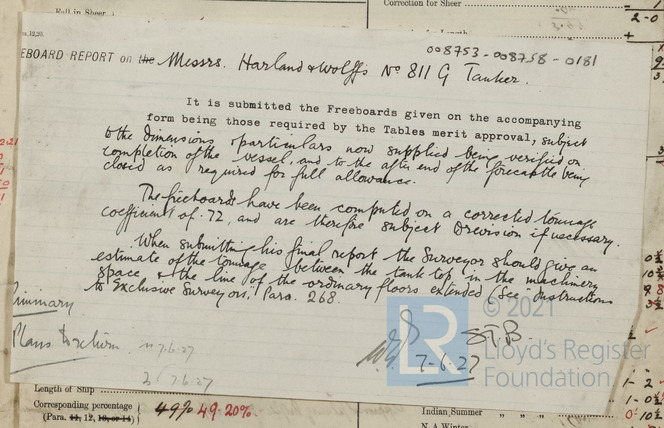 Fall in Sheer
Correction for Sheer
2-0
008753-008758-0181
EBOARD REPORT on the Messrs. Harland & Wolff's No 811 G Tanker.
It is submitted the Freeboards given on the accompanying
form being those required by the Tables merit approval, subject
to the dimensions & particulars now supplied being verified on
completion of the vessel, and to the after end of the forecastle being
closed as required for full allowance.
The freeboards have been computed on a corrected tonnage
coefficient of .72, and are therefore subject to revision if necessary.
When submitting his final report the Surveyor should give an
estimate of the tonnage between the tank top in the machinery
space & the line of the ordinary floors extended (See Instructions
to Exclusive Surveyors, Para. 268.
Plans to return 7.6.27
7.6.27
S.T.B.
7-6-27
© 2021
LR
Lloyd's Register
Foundation
Length of Ship
Corresponding percentage
(Para. 11, 12, 49% 49.20%
Indian Summer " "
N.A. Winter